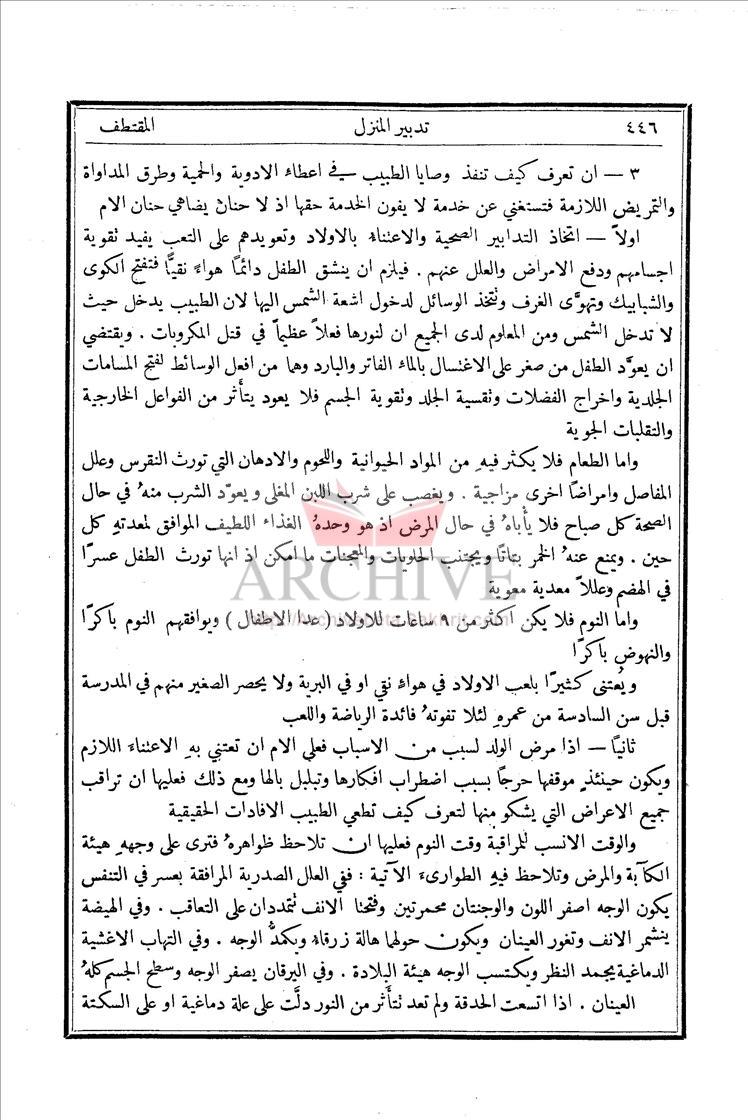 ٤٤٦ تدبير المنزل المقتطف
٣ — ان تعرف كيف تنفذ وصايا الطبيب في اعطاء الادوية والحمية وطرق المداواة
والتمريض اللازمة فتستغني عن خدمة لا يفون الخدمة حقها اذ لا حنان يضاهي حنان الام
اولاً — اتخاذ التدابير الصحية والاعتناء بالاولاد وتعويدهم على التعب يفيد تقوية
اجسامهم ودفع الامراض والعلل عنهم . فيلزم ان ينشق الطفل دائماً هواءً نقيًّا فتفتح الكوى
والشبابيك وتهوَّى الغرف وتتخذ الوسائل لدخول اشعة الشمس اليها لان الطبيب يدخل حيث
لا تدخل الشمس ومن المعلوم لدى الجميع ان لنورها فعلاً عظيماً في قتل المكروبات . ويقتضي
ان يعوَّد الطفل من صغر على الاغتسال بالماء الفاتر والبارد وهما من افعل الوسائط لفتح المسامات
الجلدية واخراج الفضلات وتقسية الجلد وتقوية الجسم فلا يعود يتأثر من الفواعل الخارجية
والتقلبات الجوية
واما الطعام فلا يكثر فيهِ من المواد الحيوانية واللحوم والادهان التي تورث النقرس وعلل
المفاصل وامراضاً اخرى مزاجية . ويغصب على شرب اللبن المغلى ويعوّد الشرب منهُ في حال
الصحة كل صباح فلا يأباهُ في حال المرض اذ هو وحدهُ الغذاء اللطيف الموافق لمعدتهِ كل
حين . ويمنع عنهُ الخمر بتاتاً ويجتنب الحلويات والمعجنات ما امكن اذ انها تورث الطفل عسراً
في الهضم وعللاً معدية معوية
ARCHIVE
واما النوم فلا يكن اكثر من ٩ ساعات للاولاد ( عدا الاطفال ) ويوافقهم النوم باكراً
والنهوض باكراً
ويُعتنى كثيراً بلعب الاولاد في هواءٍ نقي او في البرية ولا يحصر الصغير منهم في المدرسة
قبل سن السادسة من عمرهِ لئلا تفوتهُ فائدة الرياضة واللعب
ثانياً — اذا مرض الولد لسبب من الاسباب فعلى الام ان تعتني بهِ الاعتناء اللازم
ويكون حينئذٍ موقفها حرجاً بسبب اضطراب افكارها وتبلبل بالها ومع ذلك فعليها ان تراقب
جميع الاعراض التي يشكو منها لتعرف كيف تطعي الطبيب الافادات الحقيقية
والوقت الانسب للمراقبة وقت النوم فعليها ان تلاحظ ظواهرهُ فترى على وجههِ هيئة
الكآبة والمرض وتلاحظ فيهِ الطوارىء الآتية : ففي العلل الصدرية المرافقة بعسر في التنفس
يكون الوجه اصفر اللون والوجنتان محمرتين وفتحتا الانف تتمددان على التعاقب . وفي الهيضة
ينشمر الانف وتغور العينان ويكون حولهما هالة زرقاء ويكمدُّ الوجه . وفي التهاب الاغشية
الدماغية يجمد النظر ويكتسب الوجه هيئة البلادة . وفي اليرقان يصفر الوجه وسطح الجسم كلهُ
العينان . اذا اتسعت الحدقة ولم تعد تتأثر من النور دلَّت على علة دماغية او على السكتة